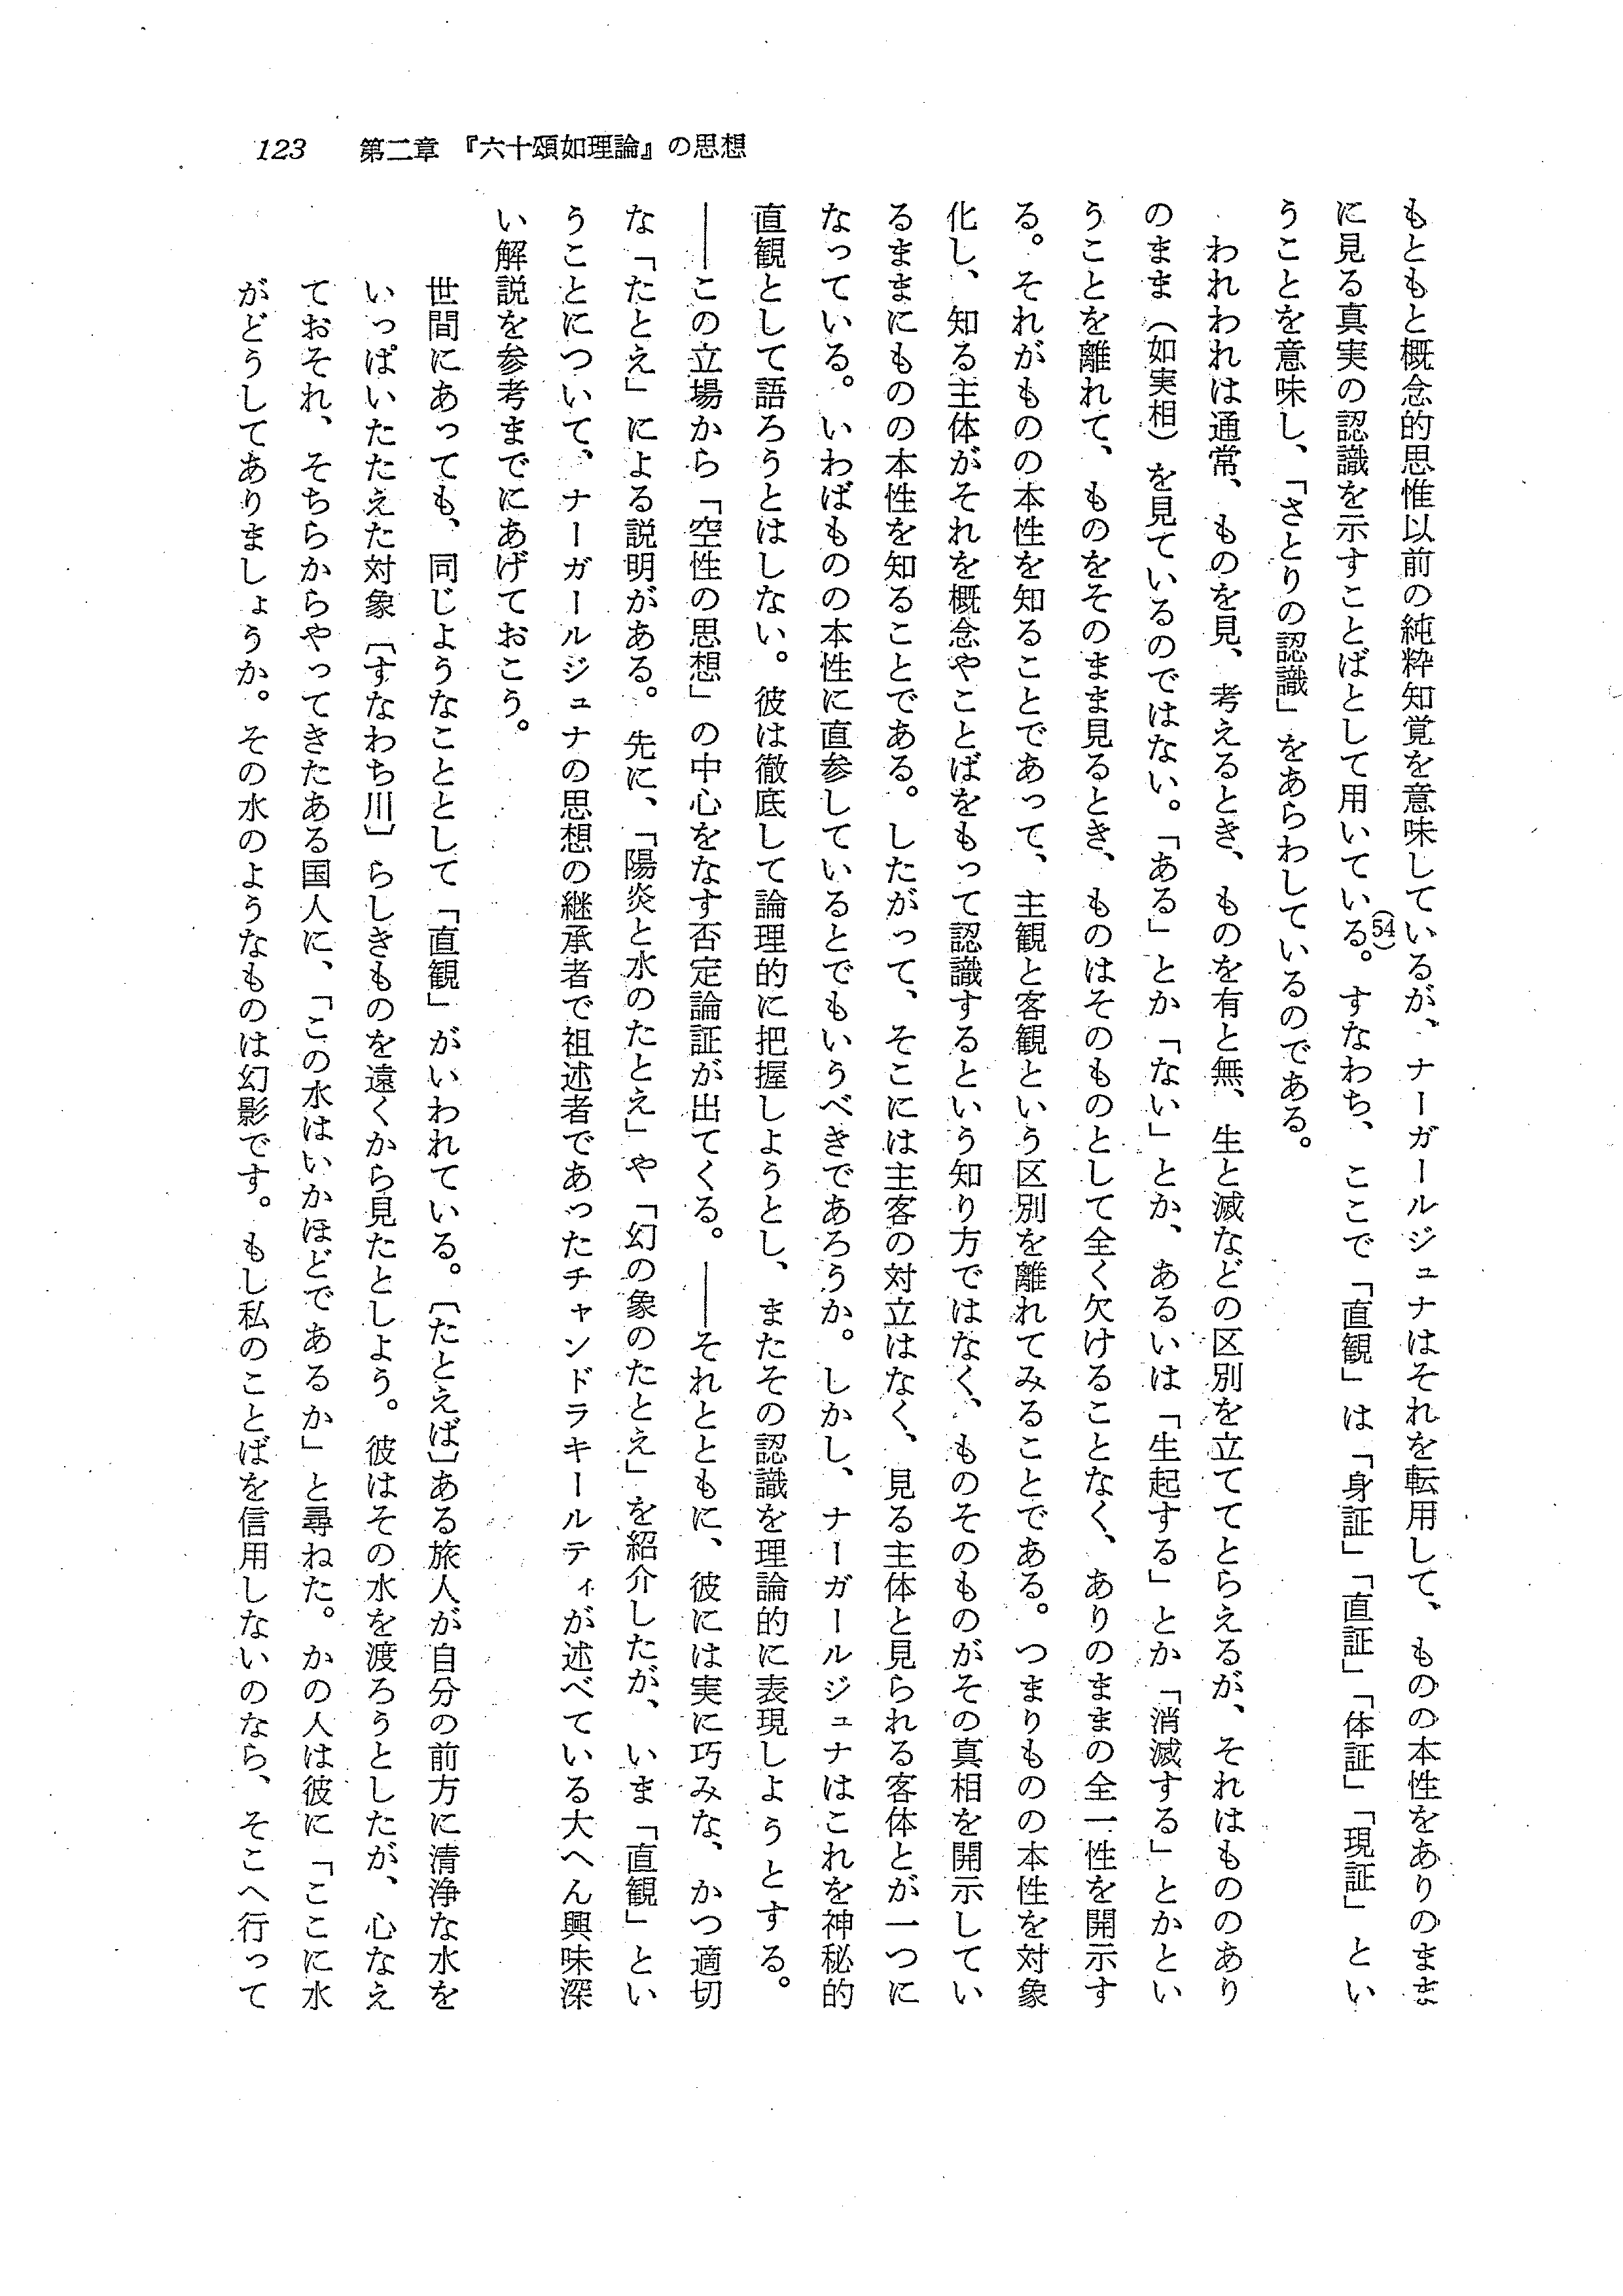 123　第二章　『六十頌如理論』の思想
もともと概念的思惟以前の純粋知覚を意味しているが、ナーガールジュナはそれを転用して、ものの本性をありのまま
に見る真実の認識を示すことばとして用いている。(54)すなわち、ここで「直観」は「身証」「直証」「体証」「現証」とい
うことを意味し、「さとりの認識」をあらわしているのである。
　われわれは通常、ものを見、考えるとき、ものを有と無、生と滅などの区別を立ててとらえるが、それはもののあり
のまま（如実相）を見ているのではない。「ある」とか「ない」とか、あるいは「生起する」とか「消滅する」とかとい
うことを離れて、ものをそのまま見るとき、ものはそのものとして全く欠けることなく、ありのままの全一性を開示す
る。それがものの本性を知ることであって、主観と客観という区別を離れてみることである。つまりものの本性を対象
化し、知る主体がそれを概念やことばをもって認識するという知り方ではなく、ものそのものがその真相を開示してい
るままにものの本性を知ることである。したがって、そこには主客の対立はなく、見る主体と見られる客体とが一つに
なっている。いわばものの本性に直参しているとでもいうべきであろうか。しかし、ナーガールジュナはこれを神秘的
直観として語ろうとはしない。彼は徹底して論理的に把握しようとし、またその認識を理論的に表現しようとする。
――この立場から「空性の思想」の中心をなす否定論証が出てくる。――それとともに、彼には実に巧みな、かつ適切
な「たとえ」による説明がある。先に、「陽炎と水のたとえ」や「幻の象のたとえ」を紹介したが、いま「直観」とい
うことについて、ナーガールジュナの思想の継承者で祖述者であったチャンドラキールティが述べている大へん興味深
い解説を参考までにあげておこう。
　世間にあっても、同じようなこととして「直観」がいわれている。〔たとえば〕ある旅人が自分の前方に清浄な水を
いっぱいたたえた対象〔すなわち川〕らしきものを遠くから見たとしよう。彼はその水を渡ろうとしたが、心なえ
ておそれ、そちらからやってきたある国人に、「この水はいかほどであるか」と尋ねた。かの人は彼に「ここに水
がどうしてありましょうか。その水のようなものは幻影です。もし私のことばを信用しないのなら、そこへ行って